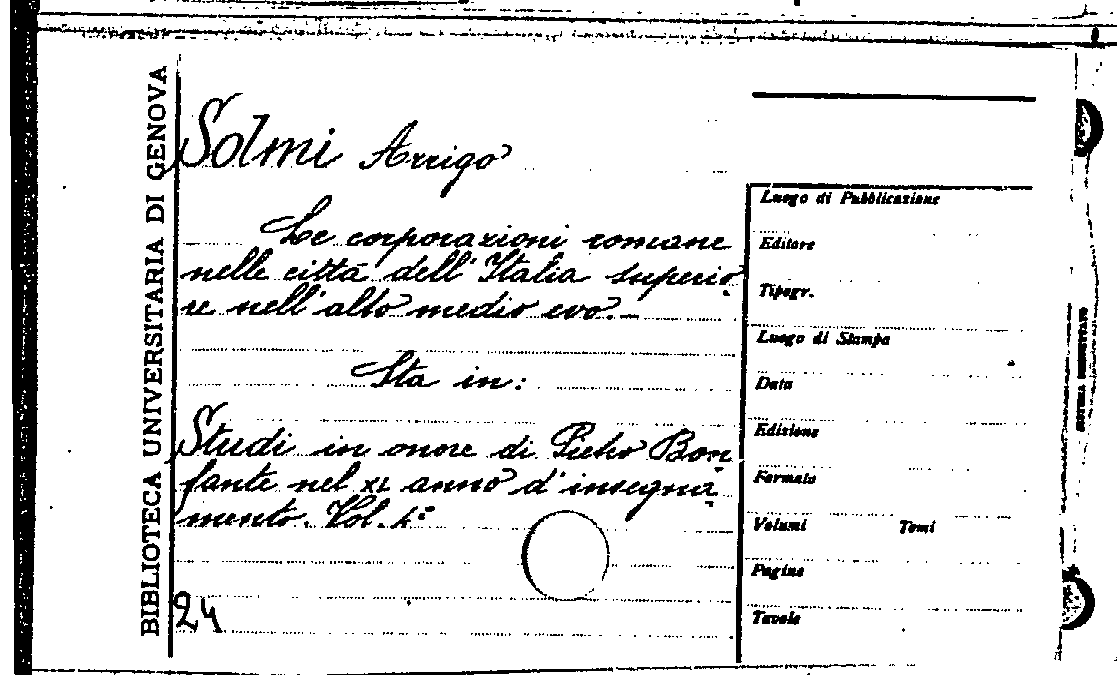 BIBLIOTECA UNIVERSITARIA DI GENOVA
Solmi Arrigo
Le corporazioni romane
nelle città dell'Italia superio-
re nell'alto medio evo.—
Sta in:
Studi in onore di Pietro Bon-
fante nel XL anno d'insegna-
mento. Vol. 1º
24
Luogo di Pubblicazione
Editore
Tipogr.
Luogo di Stampa
Data
Edizione
Formato
Volumi Tomi
Pagine
Tavole